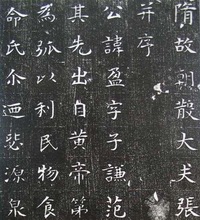 隋故朝散大夫張
并序
公諱盈字子謙范
其先出自黃帝第
為弧以利民物食
命氏尒迺源泉